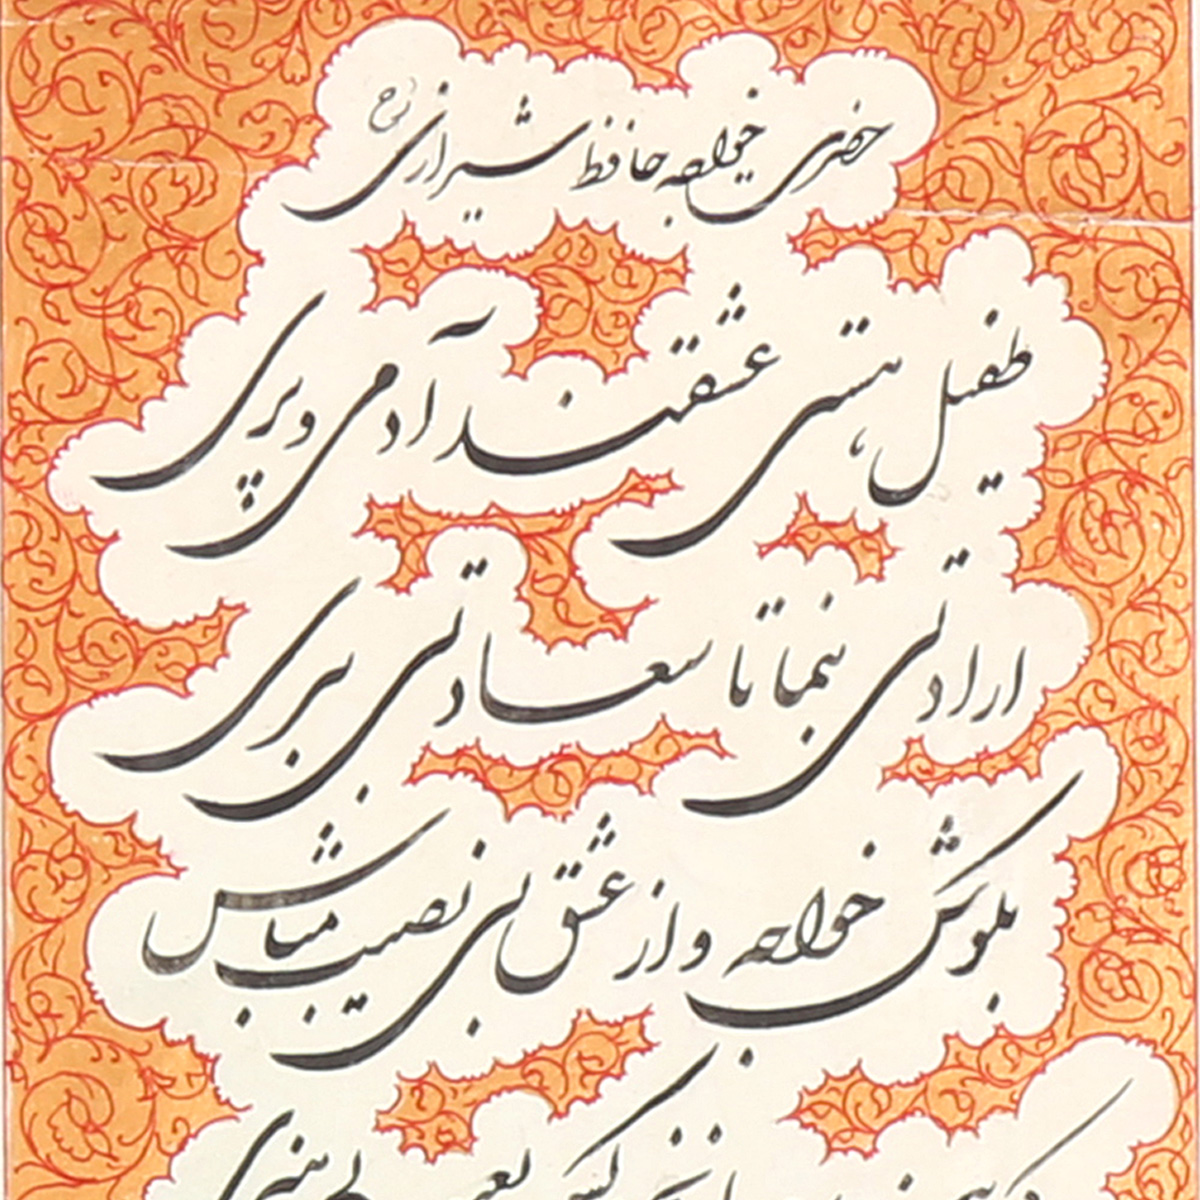 خواجه حافظ شیرازی
طفیل هستی عشقند آدمی و پری
ارادتی بنما تا سعادتی ببری
بکوش خواجه و از عشق بی نصیب مباش
کس بعیب بی هنری